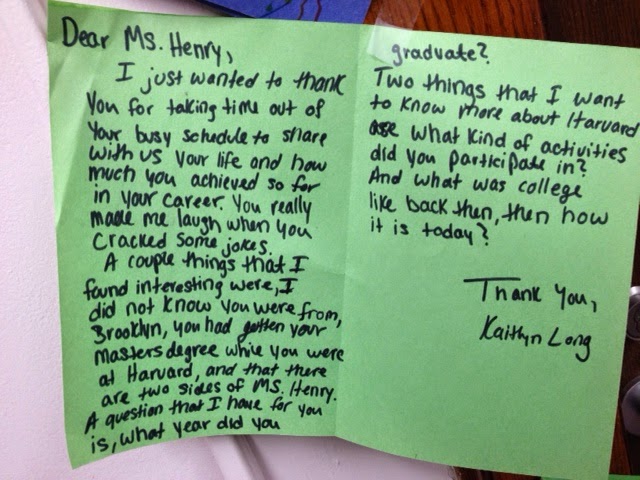 Dear Ms. Henry,
I just wanted to thank
you for taking time out of
your busy schedule to share
with us your life and how
much you achieved so far
in your career. You really
made me laugh when you
cracked some jokes.
A couple things that I
found interesting were, I
did not know you were from,
Brooklyn, you had gotten your
masters degree while you were
at Harvard, and that there
are two sides of MS. Henry.
A question that I have for you
is, what year did you
graduate?
Two things that I want
to know more about Harvard
are what kind of activities
did you participate in?
And what was college
like back then, then how
it is today?
Thank you,
Kaitlyn Long